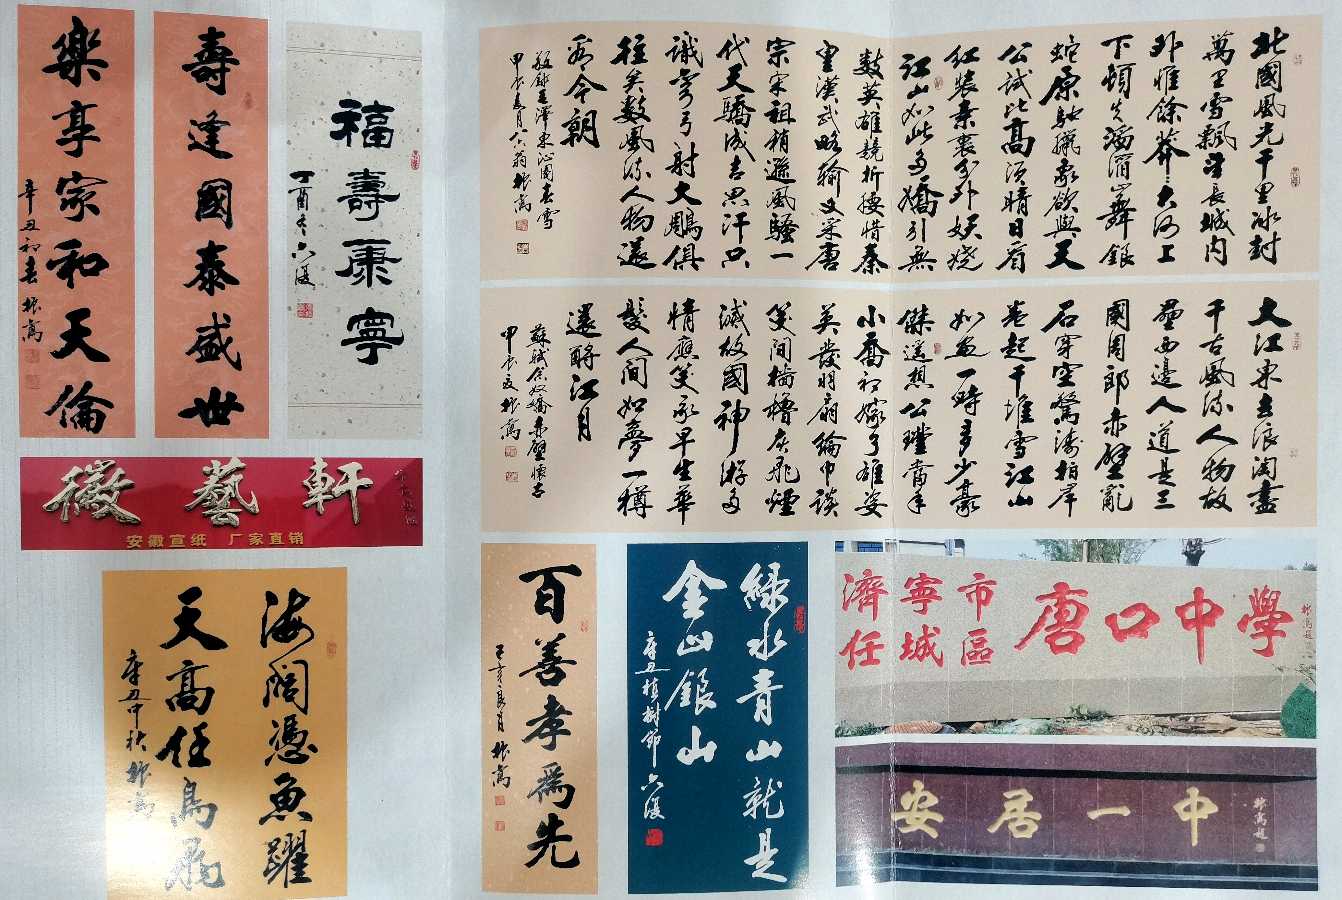 壽逢國泰盛世
樂享家和天倫
辛丑初春振嵩
福壽康寧
丁酉冬六復
徽藝軒
安徽宣纸 厂家直销
海闊憑魚躍
天高任鳥飛
辛丑中秋振嵩
北國風光千里冰封
萬里雪飄望長城內
外惟餘莽莽大河上
下頓失滔滔山舞銀
蛇原馳蠟象欲與天
公試比高須晴日看
紅裝素裹分外妖嬈
江山如此多嬌引無
數英雄競折腰惜秦
皇漢武略輸文采唐
宗宋祖稍遜風騷一
代天驕成吉思汗只
識彎弓射大雕俱
往矣數風流人物還
看今朝
敬錄毛澤東沁園春雪
甲辰春月六翁振嵩
大江東去浪淘盡
千古風流人物故
壘西邊人道是三
國周郎赤壁亂
石穿空驚濤拍岸
卷起千堆雪江山
如畫一時多少豪
傑遥想公瑾當年
小喬初嫁了雄姿
英發羽扇綸巾談
笑間檣櫓灰飛煙
滅故國神游多
情應笑我早生華
髮人間如夢一樽
還酹江月
蘇軾念奴嬌赤壁懷古
甲辰夏振嵩
百善孝為先
己亥良月振嵩
綠水青山就是
金山銀山
辛丑植樹節六復
濟寧市
任城區
唐口中學
振嵩題
安居一中
振嵩題